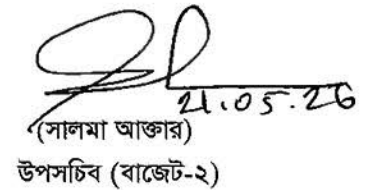 21.05.26
(সালমা আক্তার)
উপসচিব (বাজেট-২)